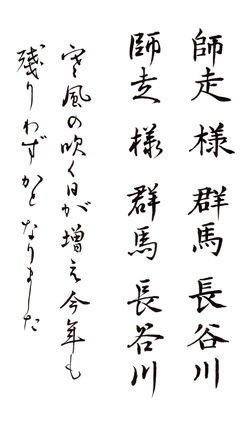 師走 様 群馬 長谷川
師走 様 群馬 長谷川
寒風の吹く日が増え今年も
残りわずかとなりました